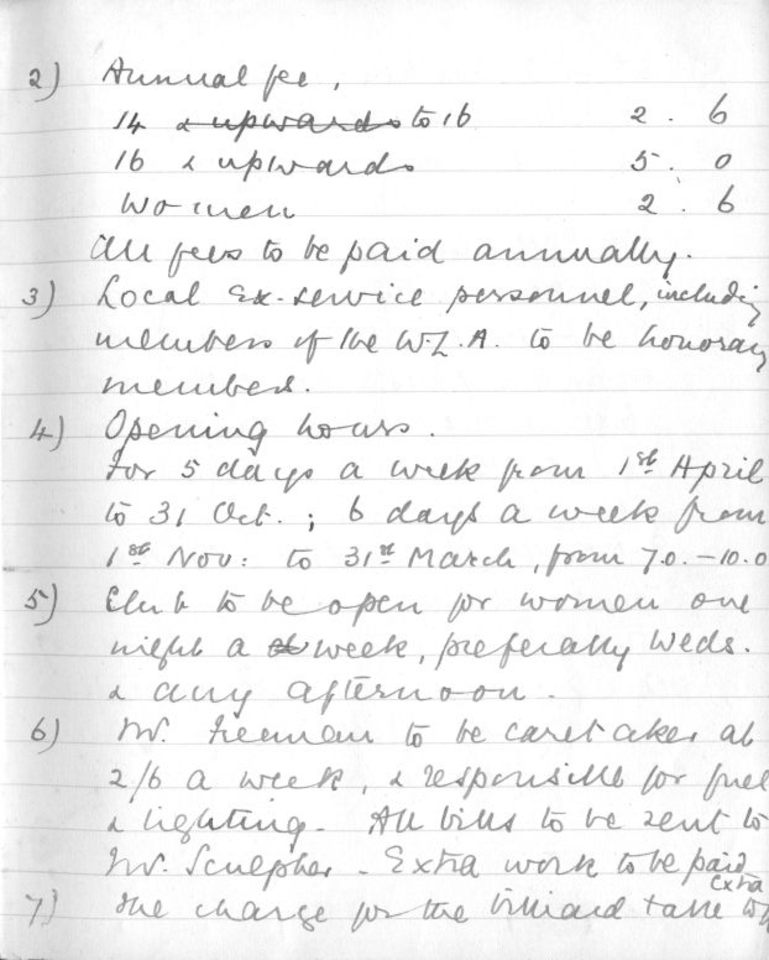 2) Annual fee,
14 & upwards to 16 2 . 6
16 & upwards 5 . 0
Women 2 . 6
All fees to be paid annually.
3) Local Ex-service personnel, including
members of the W.L.A. to be honorary
members.
4) Opening hours.
For 5 days a week from 1st April
to 31 Oct. ; 6 days a week from
1st Nov: to 31st March, from 7.0. - 10.0
5) Club to be open for women one
night a week, preferably Weds.
& any afternoon.
6) Mr. Freeman to be caretaker at
2/6 a week, & responsible for fuel
& lighting. All bills to be sent to
Mr. Sculpher. Extra work to be paid
extra
7) The charge for the billiard table to